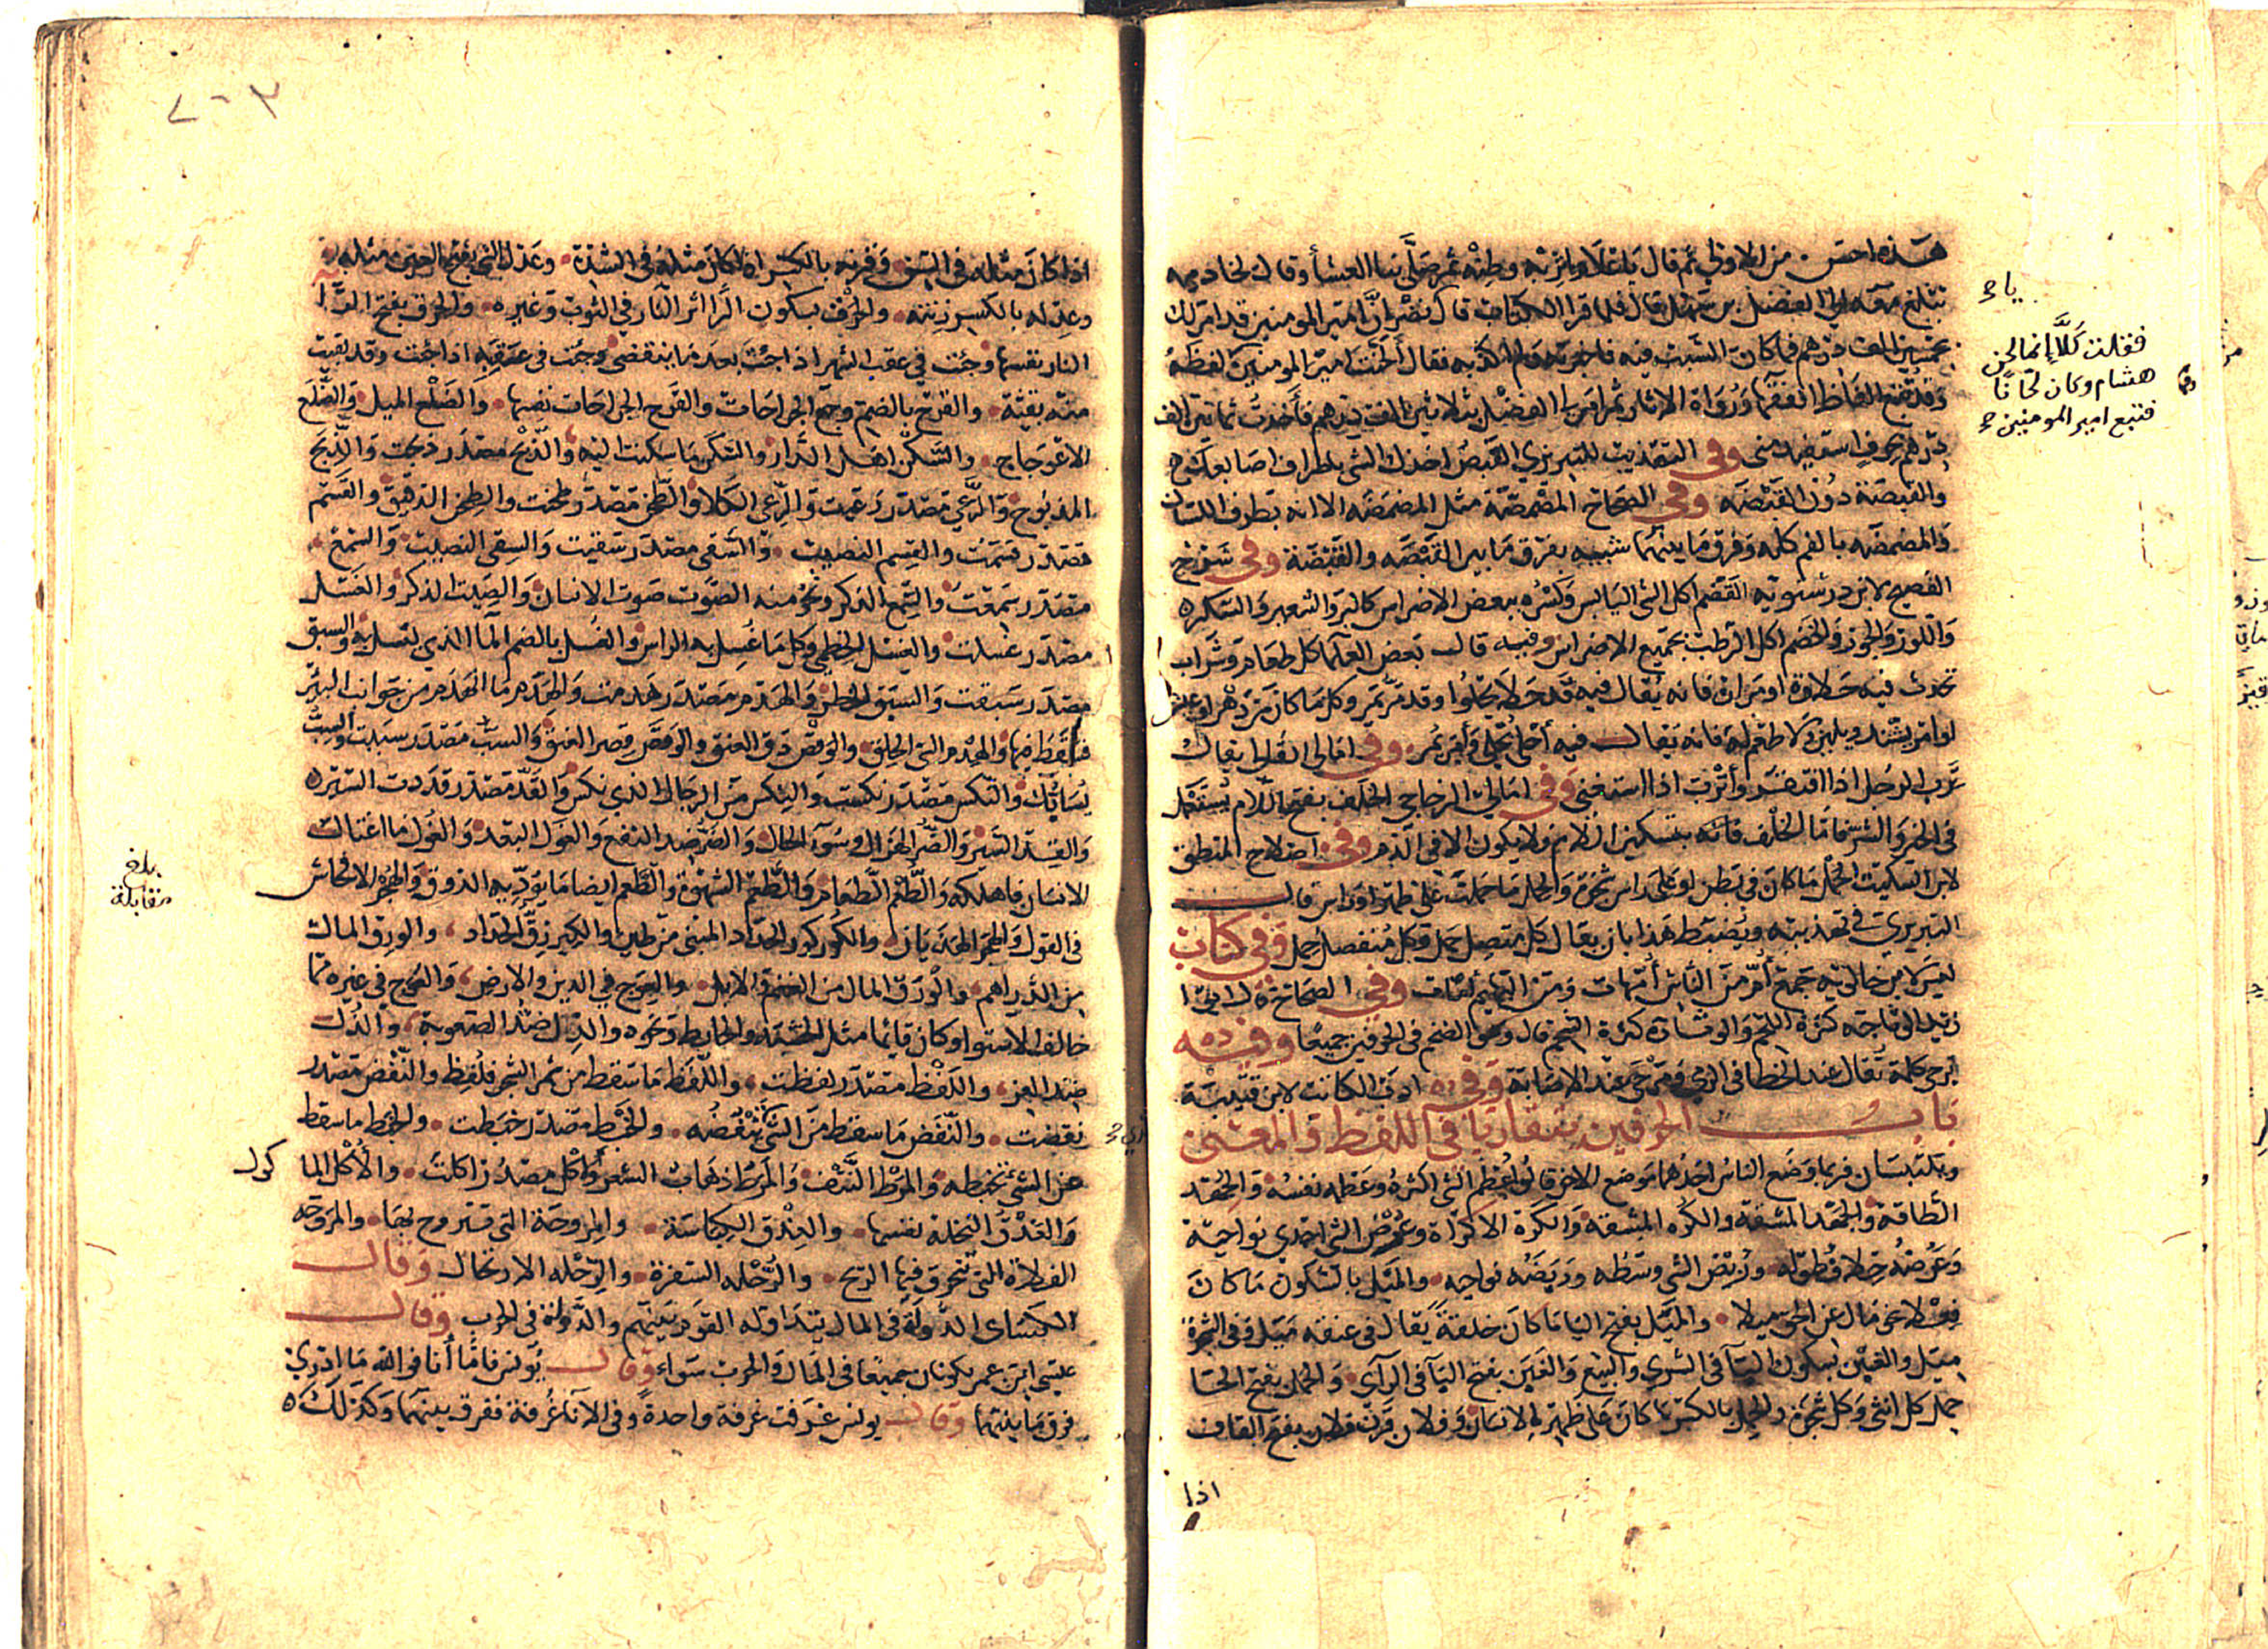 هذه احسن من الاولى ثم قال يا غلام اتربه وطنه ثم صلى بنا العشأ وقال لخادمه
تبلغ معه الى الفضل بن سهل قال فلما قرا الكتاب قال يا نضر ان امير المومنين قد امر لك
بخمسين الف درهم فما كان السبب فيه فاخبرته ولم اكذبه فقال الحنت امير المومنين لفظه
وقد تتبع الفاظ الفقها ورواة الاثار ثم امر لي الفضل بثلاثين الف درهم فأخذت ثمانين الف
درهم بحرف استفيد مني وفي التهذيب للتبريزي القبض اخذك الشي باطراف اصابعك
والقبصة دون القبضه وفي الصحاح المصمصة مثل المضمضه الا انه بطرف اللسان
والمضمضه بالفم كله وفرق ما بينهما شبيه بفرق ما بين القبصه والقبضة وفي شرح
الفصيح لابن درستويه القضم اكل الشي اليابس وكسره ببعض الاضراس كالبر والشعير والسكره
واللوز والجوز والخضم اكل الرطب بجميع الاضراس وفيه قالـ بعض العلما كل طعام وشراب
تحدث فيه حلاوة او مرارة فانه يقال فيه قد حلا يحلوا وقد مر يمر وكل ما كان من دهر او عيش
او امر يشتد ويلين ولا طعم له فانه يقالـ فيه أحلى يحلي وأمر يمر وفي امالي القالي يقال
ترب الرجل اذا افتقر وأترب اذا استغنى وفي امالي الزجاجي الخلف بفتح اللام يستعمل
في الخير والشر فاما الخلف فانه بتسكين اللام ولا يكون الا في الذم وفي اصلاح المنطق
لابن السكيت الحمل ما كان في بطن او على راس شجرة والحمل ما حملت على ظهر او راس قالـ
التبريزي في تهذيبه ويضبط هذا بان يقال كل متصل حمل وكل منفصل حمل وفي كتاب
ليس لابن خالويه جمع أم من الناس أمهات ومن البهايم أمات وفي الصحاح
ابو زيد
يرمي كلمة تقال عند الخطا في الرمي ومرحى عند الاصابة وفي ادب الكاتب لابن قتيبة
بابـ الحرفين يتقاربان في اللفظ والمعنى
ويلتبسان فربما وضع الناس احدهما موضع الاخر قالوا عظم الشي اكثره وعظمه نفسه والجهد
الطاقة والجهد المشقة والكره المشقة والكره الاكراه وعرض الشي احدي نواحيه
وعرضه خلاف طوله وربض الشي وسطه وربضه نواحيه والميل بالسكون ما كان
فعلا نحو مال عن الحق ميلا والميل بفتح اليا ما كان خلقة يقال في عنقه ميل وفي الشجرة
ميل والغبن بسكون البآ في الشري والبيع والغبن بفتح البآ في الرآي والحمل بفتح الحا
حمل كل انثى وكل شجرة والحمل بالكسر ما كان على ظهر الانسان وفلان قرن فلان بفتح القاف
اذا
فقلت كلا إنما لحن
هشام وكان لحانا
فتبع امير المومنين
اذا كان مثله في السن وقرنه بالكسر اذا كان مثله في الشدة وعدل الشي بفتح العين مثله
وعدله بالكسر زنته والحرق بسكون الرا اثر النار في الثوب وغيره والحرق بفتح الرا
النار نفسها وجئت في عقب الشهر اذا جئت بعد ما ينقضي وجئت في عقبه اذا جئت وقد بقيت
منه بقية والقرح بالضم وجع الجراحات والقرح الجراحات نفسها والضلع الميل والضلع
الاعوجاج والسكن اهل الدار والسكن ما سكنت اليه والذبح مصدر ذبحت والذبح
المذبوح والرعي مصدر رعيت والرعي الكلا والطحن مصدر طحنت والطحن الدقيق والقسم
مصدر قسمت والقسم النصيب والسقي مصدر سقيت والسقي النصيب والسمع
مصدر سمعت والسمع الذكر ونحو منه الصوت صوت الانسان والصيت الذكر والغسل
مصدر غسلت والغسل الخطمي وكل ما غسل به الراس والغسل بالضم المآ الذي يغتسل به والسبق
مصدر سبقت والسبق الخطر والهدم مصدر هدمت والهدم ما انهدم من جوانب البئر
فسقط فيها والهدم الثوب الخلق والوقص دق العنق والوقص قصر العنق والسب مصدر سببت والسب
يسابك والنكس مصدر نكست والنكس من الرجال الذي نكس والقد مصدر قددت السير
والقد السير والضر الهزال وسوء الحال والضر ضد النفع والغول البعد والغول ما اغتال
الانسان فاهلكه والطعم الطعام والطعم الشهوة والطعم ايضا ما يؤديه الذوق والهجر الافحاش
في القول والهجر الهذيان والكور كور الحداد المبني من طين والكير زق الحداد والورق المال
من الدراهم والورق المال من الغنم والابل والعوج في الدين والارض والعوج في غيره مما
خالف الاستوا وكان قائما مثل الخشبة والحايط ونحوه والذل ضد الصعوبة والذل
ضد العز واللقط مصدر لقطت واللقط ما سقط من ثمر الشجر فلقط والنفض مصدر
نفضت والنفض ما سقط من الشي تنفضه والخبط مصدر خبطت والخبط ما سقط
عن الشي تخبطه والمرط النتف والمرط ذهاب الشعر والاكل مصدر اكلت والأكل الما
كول
والعذق النخلة نفسها والعذق الكباسة والمروحة التي تتروح بها والمروحه
الفلاة التي تنخرق فيها الريح والرحله السفرة والرحله الارتحال وقالـ
الكساي الدولة في المال يتداوله القوم بينهم والدولة في الحرب وقالـ
عيسى ابن عمر يكونان جميعا في المال والحرب سواء وقالـ يونس فاما أنا فوالله ما ادري
فرق ما بينهما وقالـ يونس غرفت غرفة واحدة وفي الانآ غرفة ففرق بينهما وكذلك
بلغ
مقابلة